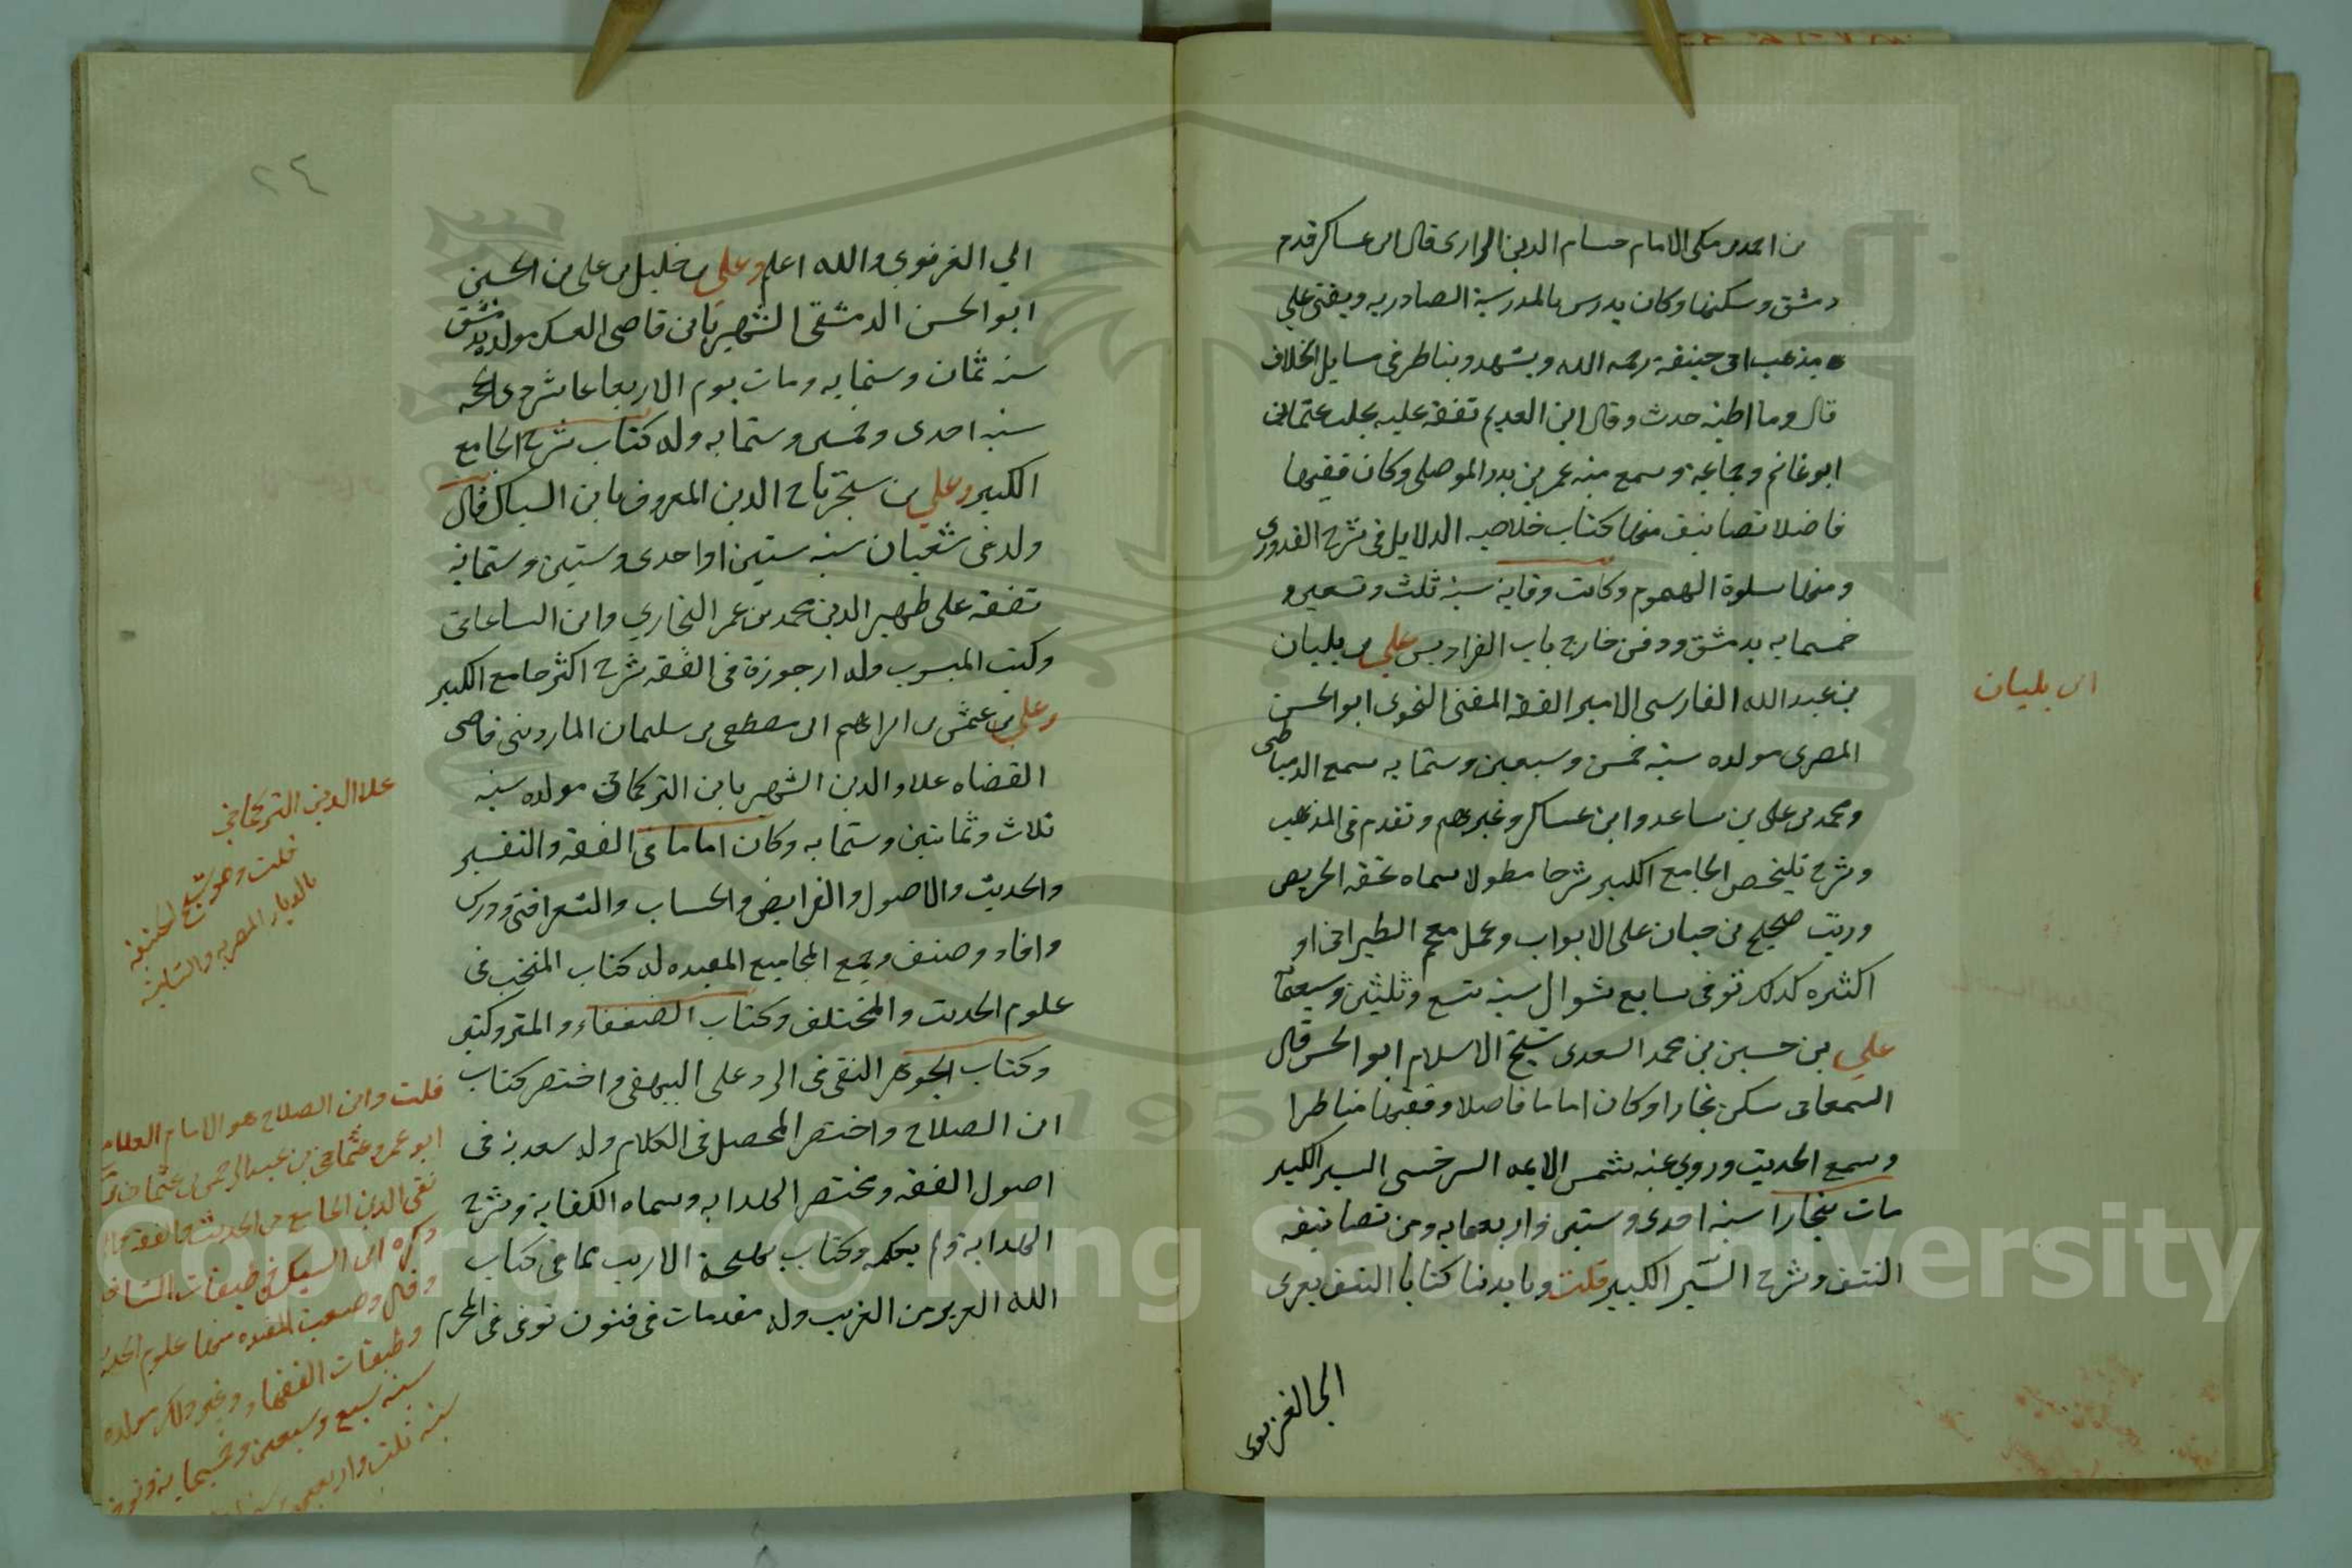 بن احمد بن مكى الامام حسام الدين الرازى قال ابن عساكر قدم
دمشق وسكنها وكان يدرس بالمدرسة الصادريه ويفتى على
مذهب ابى حنيفة رحمه الله ويشهد ويناظر فى مسايل الخلاف
قال وما اظنه حدث وقال ابن العديم تفقه عليه بحلب عمى
ابو غانم وجماعة وسمع منه عمر بن بدر الموصلى وكان فقيها
فاضلا تصانيف منها كتاب خلاصه الدلايل فى شرح القدورى
ومنها سلوة الهموم وكانت وفاته سنة ثلث وتسعين و
خمسمايه بدمشق ودفن خارج باب الفراديس على بن بلبان
بن عبد الله الفارسى الامير الفقه المفتى النحوى ابو الحسن
المصرى مولده سنة خمس وسبعين وستمايه سمع الدمياطى
ومحمد بن على بن ساعد وابن عساكر وغيرهم وتقدم فى المذهب
وشرح تلخيص الجامع الكبير شرحا مطولا سماه تحفة الحريص
ورتب صحيح بن حبان على الابواب وعمل معجم الطبرانى او
اكثره كذلك توفى سابع شوال سنة تسع وثلثين وسبعمآ
على بن حسين بن محمد السعدى شيخ الاسلام ابو الحسن قال
السمعانى سكن بخارا وكان اماما فاضلا وفقيها مناظرا
وسمع الحديث وروى عنه شمس الايمه السرخسى السير الكبير
مات ببخارا سنة احدى وستين واربعمايه ومن تصانيفه
النتف وشرح السّير الكبير قلت وبايدنا كتابا النتف يعزى
الى الغزنوى
ابن بلبان
٢٤
الي الغزنوي والله اعلم وعلى بن خليل بن على بن الحسين
ابو الحسن الدمشقى الشهير بابن قاضى العسكر مولده بدمشق
سنة ثمان وستمايه ومات يوم الاربعا عاشر ذى الحجه
سنة احدى وخمسين وستمايه وله كتاب شرح الجامع
الكبير وعلي بن سنجر تاج الدين المعروف بابن السباك قال
ولد فى شعبان سنه ستين او احدى وستين وستماية
تفقه على ظهير الدين محمد بن عمر البخاري وابن الساعاتى
وكتب المنسوب وله ارجوزة فى الفقه شرح اكثر جامع الكبير
وعلي بن عثمن بن ابراهيم ابن مصطفى بن سليمان الماردينى قاضى
القضاه علاء الدين الشهير بابن التركمانى مولده سنة
ثلاث وثمانين وستمايه وكان اماما فى الفقه والتفسير
والحديث والاصول والفرايض والحساب والشعر افتى ودرس
وافاد وصنف وجمع المجاميع المفيده له كتاب المنتخب فى
علوم الحديث والمختلف وكتاب الضعفاء والمتروكين
وكتاب الجوهر النقى فى الرد على البيهقى واختصر كتاب
ابن الصلاح واختصر المحصل فى الكلام وله سعدية فى
اصول الفقه ومختصر الهدايه وسماه الكفاية وشرح
الهداية ولم يكمله وكتاب بهجة الاريب بما فى كتاب
الله العزيز من الغريب وله مقدمات فى فنون توفى فى المحرم
علا الدين التركمانى
قلت وهو شيخ الحنفية
بالديار المصريه والشامية
قلت وابن الصلاح هو الامام العلام
ابو عمرو عثمان بن عبد الرحمن بن عثمان
تقى الدين الجامع بين الحديث والفقه
ذكره ابن السبكى فى طبقات الشاف
وقال وصنف المفيده منها علوم الحديث
وطبقات الفقهاء وغير ذلك مولده
سنة سبع وسبعين وخمسمايه وتوفى
سنة ثلث واربعين
Copyright © King Saud University
1957